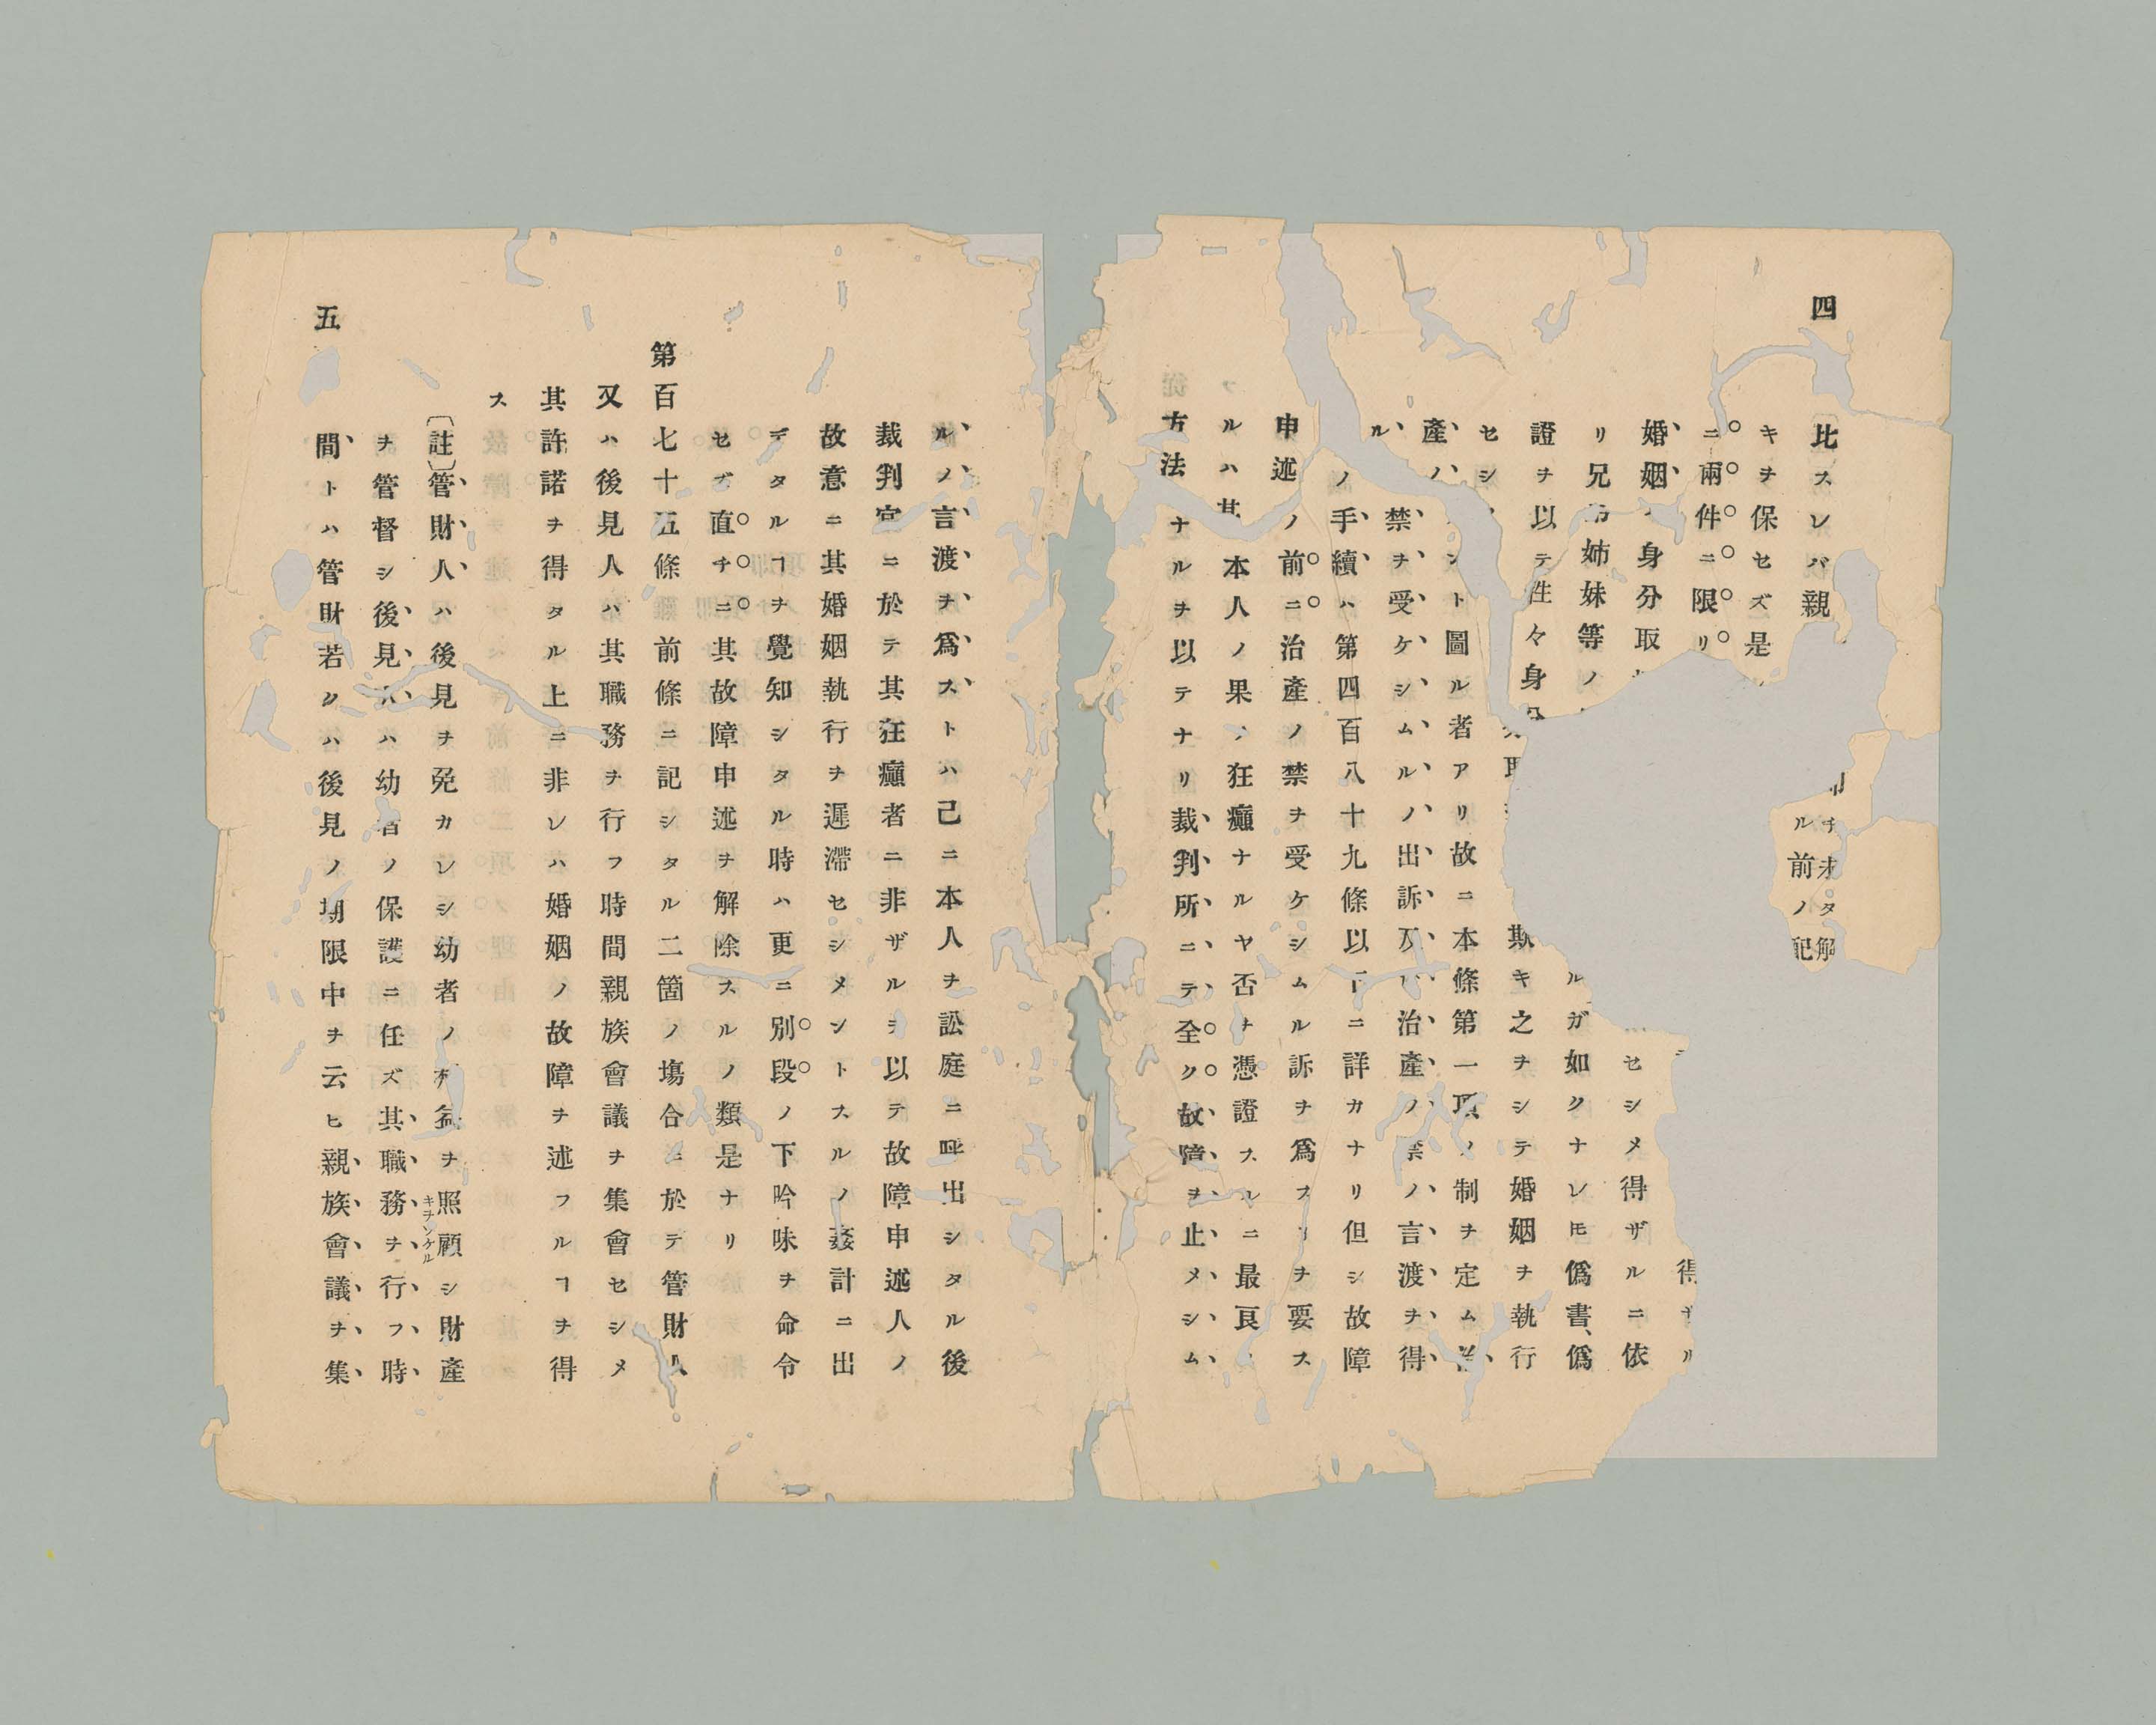 四
比スレバ親
キヲ保セズ是
ニ兩件ニ限リ
婚姻 身分取
リ兄弟姉妹等ノ
證ヲ以テ往々身
セシ
產ハ ント圖ル者アリ故ニ本條第一項ノ制ヲ定ム
ル 禁ヲ受ケシムルノ出訴及 治產ノ禁ノ言渡ヲ得
ノ手續ハ第四百八十九條以下ニ詳カナリ但シ故障
申述ノ前ニ治產ノ禁ヲ受ケシムル訴ヲ爲スヿヲ要ス
ルハ其 本人ノ果 狂癲ナルヤ否ヲ憑證スルニ最良
方法ナルヲ以テナリ裁判所ニテ全ク故障ヲ止メシム
ヲ未タ解
ル前ノ配
得ザル
セシメ得ザルニ依
ルガ如クナレ𪜈僞書、僞
斯キ之ヲシテ婚姻ヲ執行
ルノ言渡ヲ爲ストハ己ニ本人ヲ訟庭ニ呼出シタル後
裁判官ニ於テ其狂癲者ニ非ザルヲ以テ故障申述人ノ
故意ニ其婚姻執行ヲ遲滯セシメントスルノ姦計ニ出
デタルヿヲ覺知シタル時ハ更ニ別段ノ下吟味ヲ命令
セズ直チニ其故障申述ヲ解除スルノ類是ナリ
第百七十五條 前條ニ記シタル二箇ノ塲合ニ於テ管財人
又ハ後見人ハ其職務ヲ行フ時間親族會議ヲ集會セシメ
其許諾ヲ得タル上ニ非レハ婚姻ノ故障ヲ述フルヿヲ得
ス
〔註〕管財人ハ後見ヲ免カレシ幼者ノ 益ヲ照顧シ財產
キヲンケル
ヲ管督シ後見人ハ幼者ノ保護ニ任ズ其職務ヲ行フ時
間トハ管財若クハ後見ノ期限中ヲ云ヒ親族會議ヲ集
五